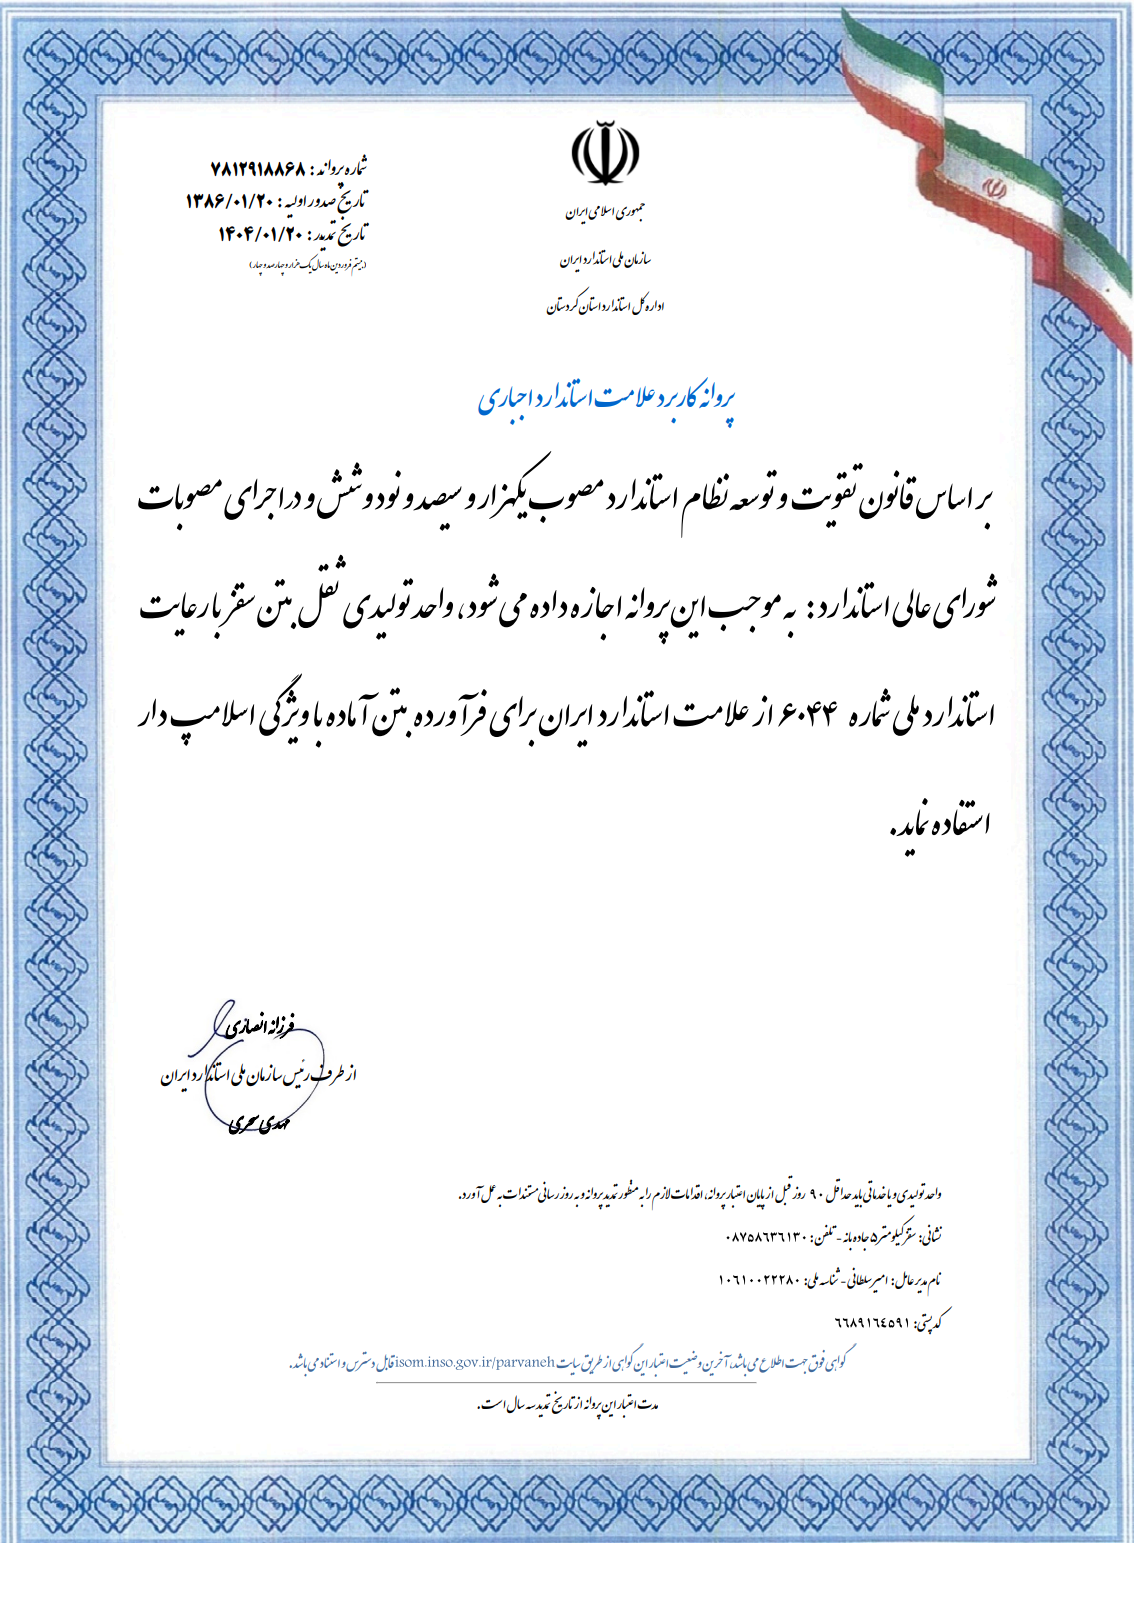 جمهوری اسلامی ایران
سازمان ملی استاندارد ایران
اداره کل استاندارد استان کردستان
شماره پروانه : ۷۸۱۲۹۱۸۸۶۸
تاریخ صدور اولیه : ۱۳۸۶/۰۱/۲۰
تاریخ تمدید : ۱۴۰۴/۰۱/۲۰
(بیستم فروردین ماه سال یک هزار و چهارصد و چهار)
پروانه کاربرد علامت استاندارد اجباری
بر اساس قانون تقویت و توسعه نظام استاندارد مصوب یکهزار و سیصد و نود و شش و در اجرای مصوبات
شورای عالی استاندارد : به موجب این پروانه اجازه داده می شود، واحد تولیدی ثقل بتن سقز با رعایت
استاندارد ملی شماره ۶۰۴۴ از علامت استاندارد ایران برای فرآورده بتن آماده با ویژگی اسلامپ دار
استفاده نماید.
فرزانه انصاری
از طرف رئیس سازمان ملی استاندارد ایران
مهدی سحری
واحد تولیدی و یا خدماتی باید حداقل ۹۰ روز قبل از پایان اعتبار پروانه، اقدامات لازم را به منظور تمدید پروانه و به روز رسانی مستندات به عمل آورد.
نشانی: سقز کیلومتر۵ جاده بانه - تلفن: ۰۸۷۵۸۶۳۶۱۳۰
نام مدیر عامل: امیر سلطانی - شناسه ملی: ۱۰۶۱۰۰۲۲۲۸۰
کد پستی: ۶۶۸۹۱۶۴۵۹۱
گواهی فوق جهت اطلاع می باشد، آخرین وضعیت اعتبار این گواهی از طریق سایت isom.inso.gov.ir/parvaneh قابل دسترس و استناد می باشد.
مدت اعتبار این پروانه از تاریخ تمدید سه سال است.